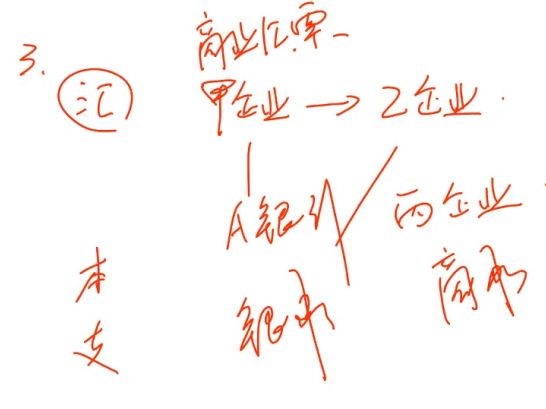 3.
商业汇票
汇
甲企业 → 乙企业
A银行
丙企业
本
银承
商承
支